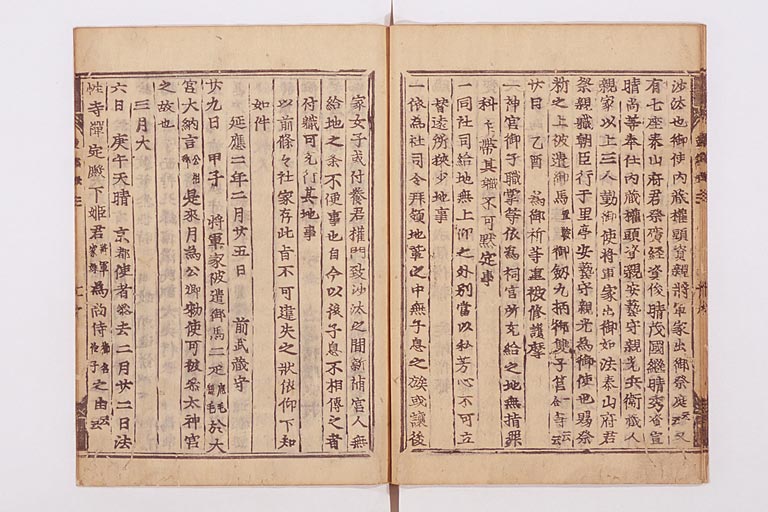 沙汰也御使内藏權頭資親將軍家出御祭庭云々又
有七座泰山府君祭廣經資俊晴茂國継晴秀資宣
晴尚等奉仕内藏權頭資親安藝守親光兵衛職人
親家以上三人勤御使將軍家出御如法泰山府君
祭親職朝臣行于里亭安藝守親光為御使也賜祭
祈之上被遣御馬置鞍御釼九柄御雙子筥合等云云
廿日 乙酉 為御祈等被修護摩
一神宮御子職掌等依為祠官所充給之地無指罪
科 乍帶其職不可點定事
一同社司給地無上仰之外別當以私芳心不可立
替遠所狹少地事
一依為社司令拜領地輩之中無子息之族或讓後
家女子或付養君權門致沙汰之間新補宮人無
給地之条不便事也自今以後子息不相傳之者
付職可充行其地事
以前條々社家存此旨不可違失之状依仰下知
如件
延應二年二月廿五日 前武藏守
廿九日 甲子 將軍家被遣御馬二疋鹿毛毛於大
宮大納言公相是來月為公卿勅使可被參太神宮
之故也
三月大
六日 庚午天晴 京都使者參去二月廿二日法
性寺禪定殿下姫君將軍家姉為尚侍御名子之由云云